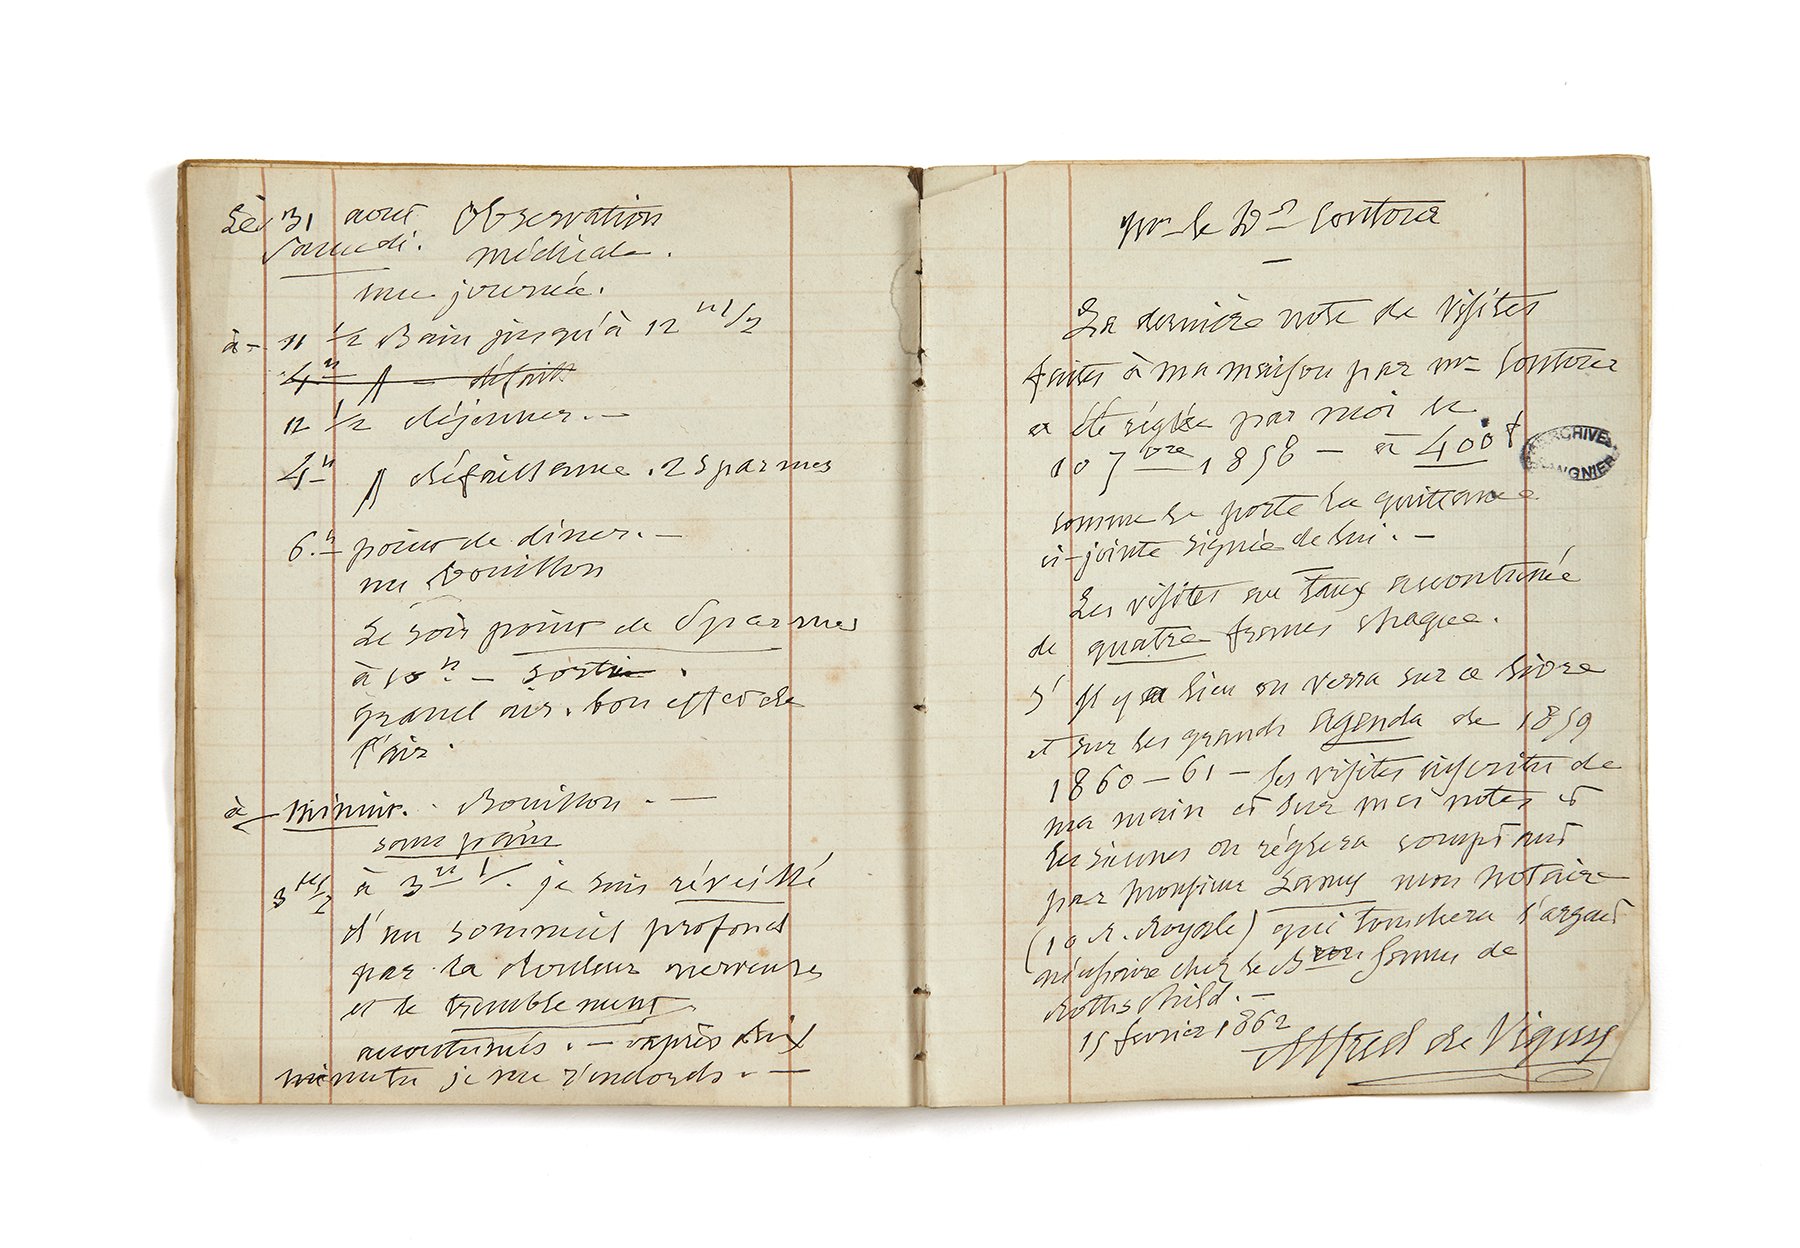 Le 31 aout Observation
Samedi. médicale.
une journée.
à — 11 1/2 Bain jusqu'à 12 h 1/2
4h — défaill
12 1/2 déjeuner. —
4h défaillance. 2 Spasmes
6.h point de diner. —
un Bouillon
Le soir point de Spasmes
à 10 h — sortie.
grand air. bon effet de
l'air.
à — minuit. Bouillon. —
sans pain
3 h 1/2 à 3 h 1/2. je suis réveillé
d'un sommeil profond
par la douleur nerveuse
et le tremblement
accoutumés. — après dix
minutes je me rendords. —
Mr le Dr
—
La dernière note de visites
faites à ma maison par Mr
a été réglée par moi le
10 7bre 1858 — à 400 f
ARCHIVES
SANGNIER
comme le porte la quittance
ci-jointe signée de lui. —
Les visites au taux accoutumé
de quatre francs chaque.
S'il y a lieu on verra sur ce livre
et sur les grands agenda de 1859
1860 — 61 — les visites inscrites de
ma main et sur mes notes et
les siennes on réglera comptant
par Monsieur Lamy mon notaire
(10 R. Royale) qui touchera l'argent
nécessaire chez le Bon James de
Rothschild. —
15 février 1862
Alfred de Vigny